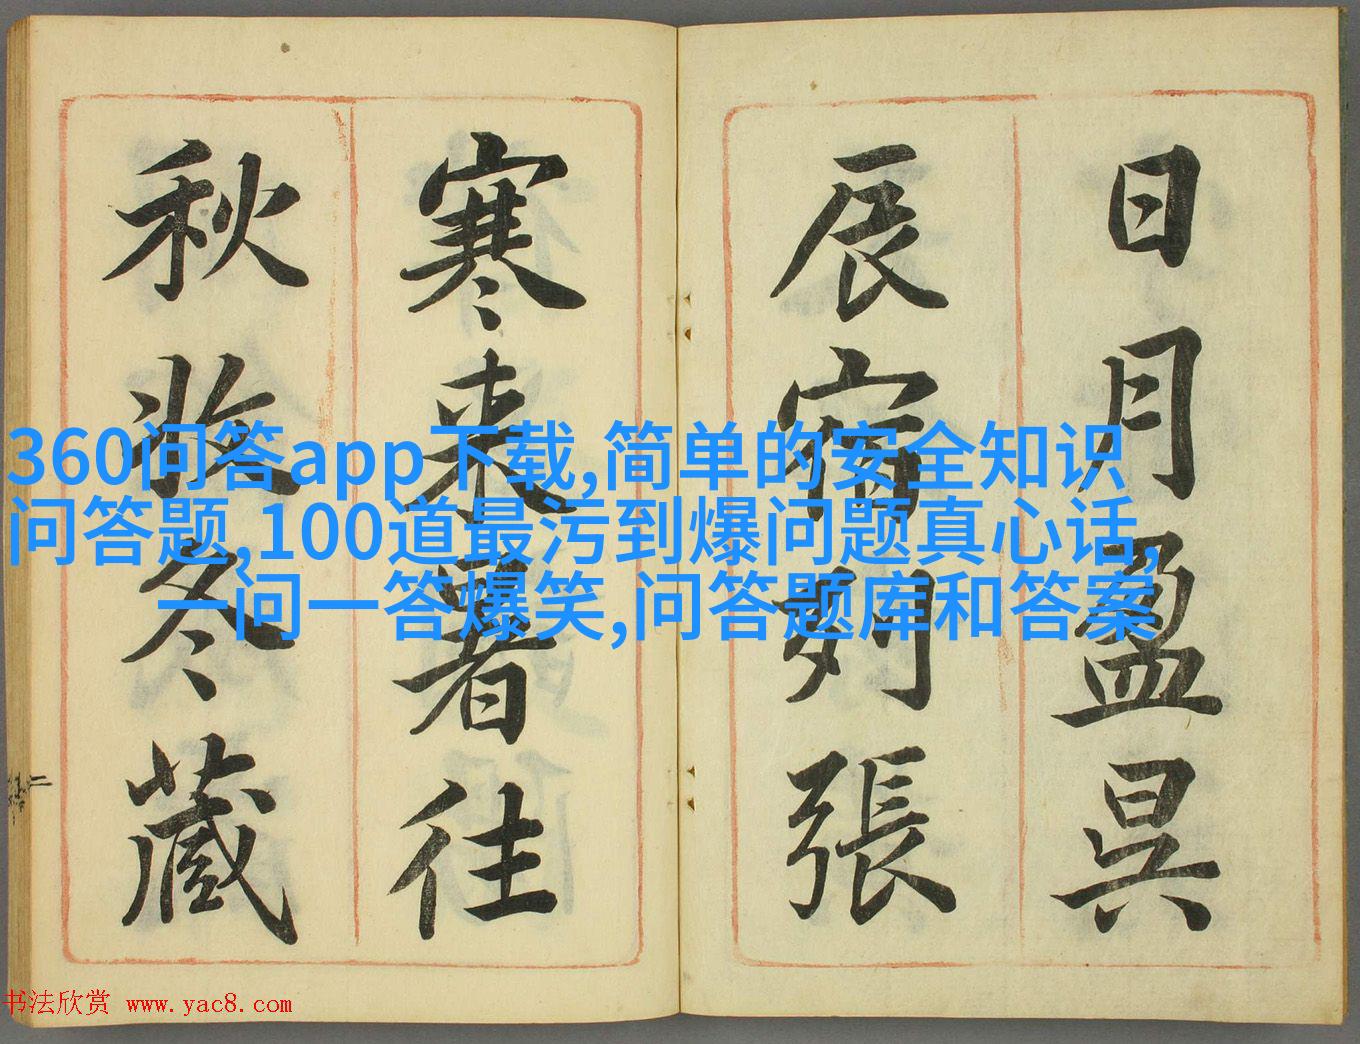 日月盈昃
辰宿列張
寒来暑往
秋收冬藏
360问答app下载,简单的安全知识
问答题,100道最污到爆问题真心话,
一问一答爆笑,问答题库和答案
书法欣赏 www.yac8.com